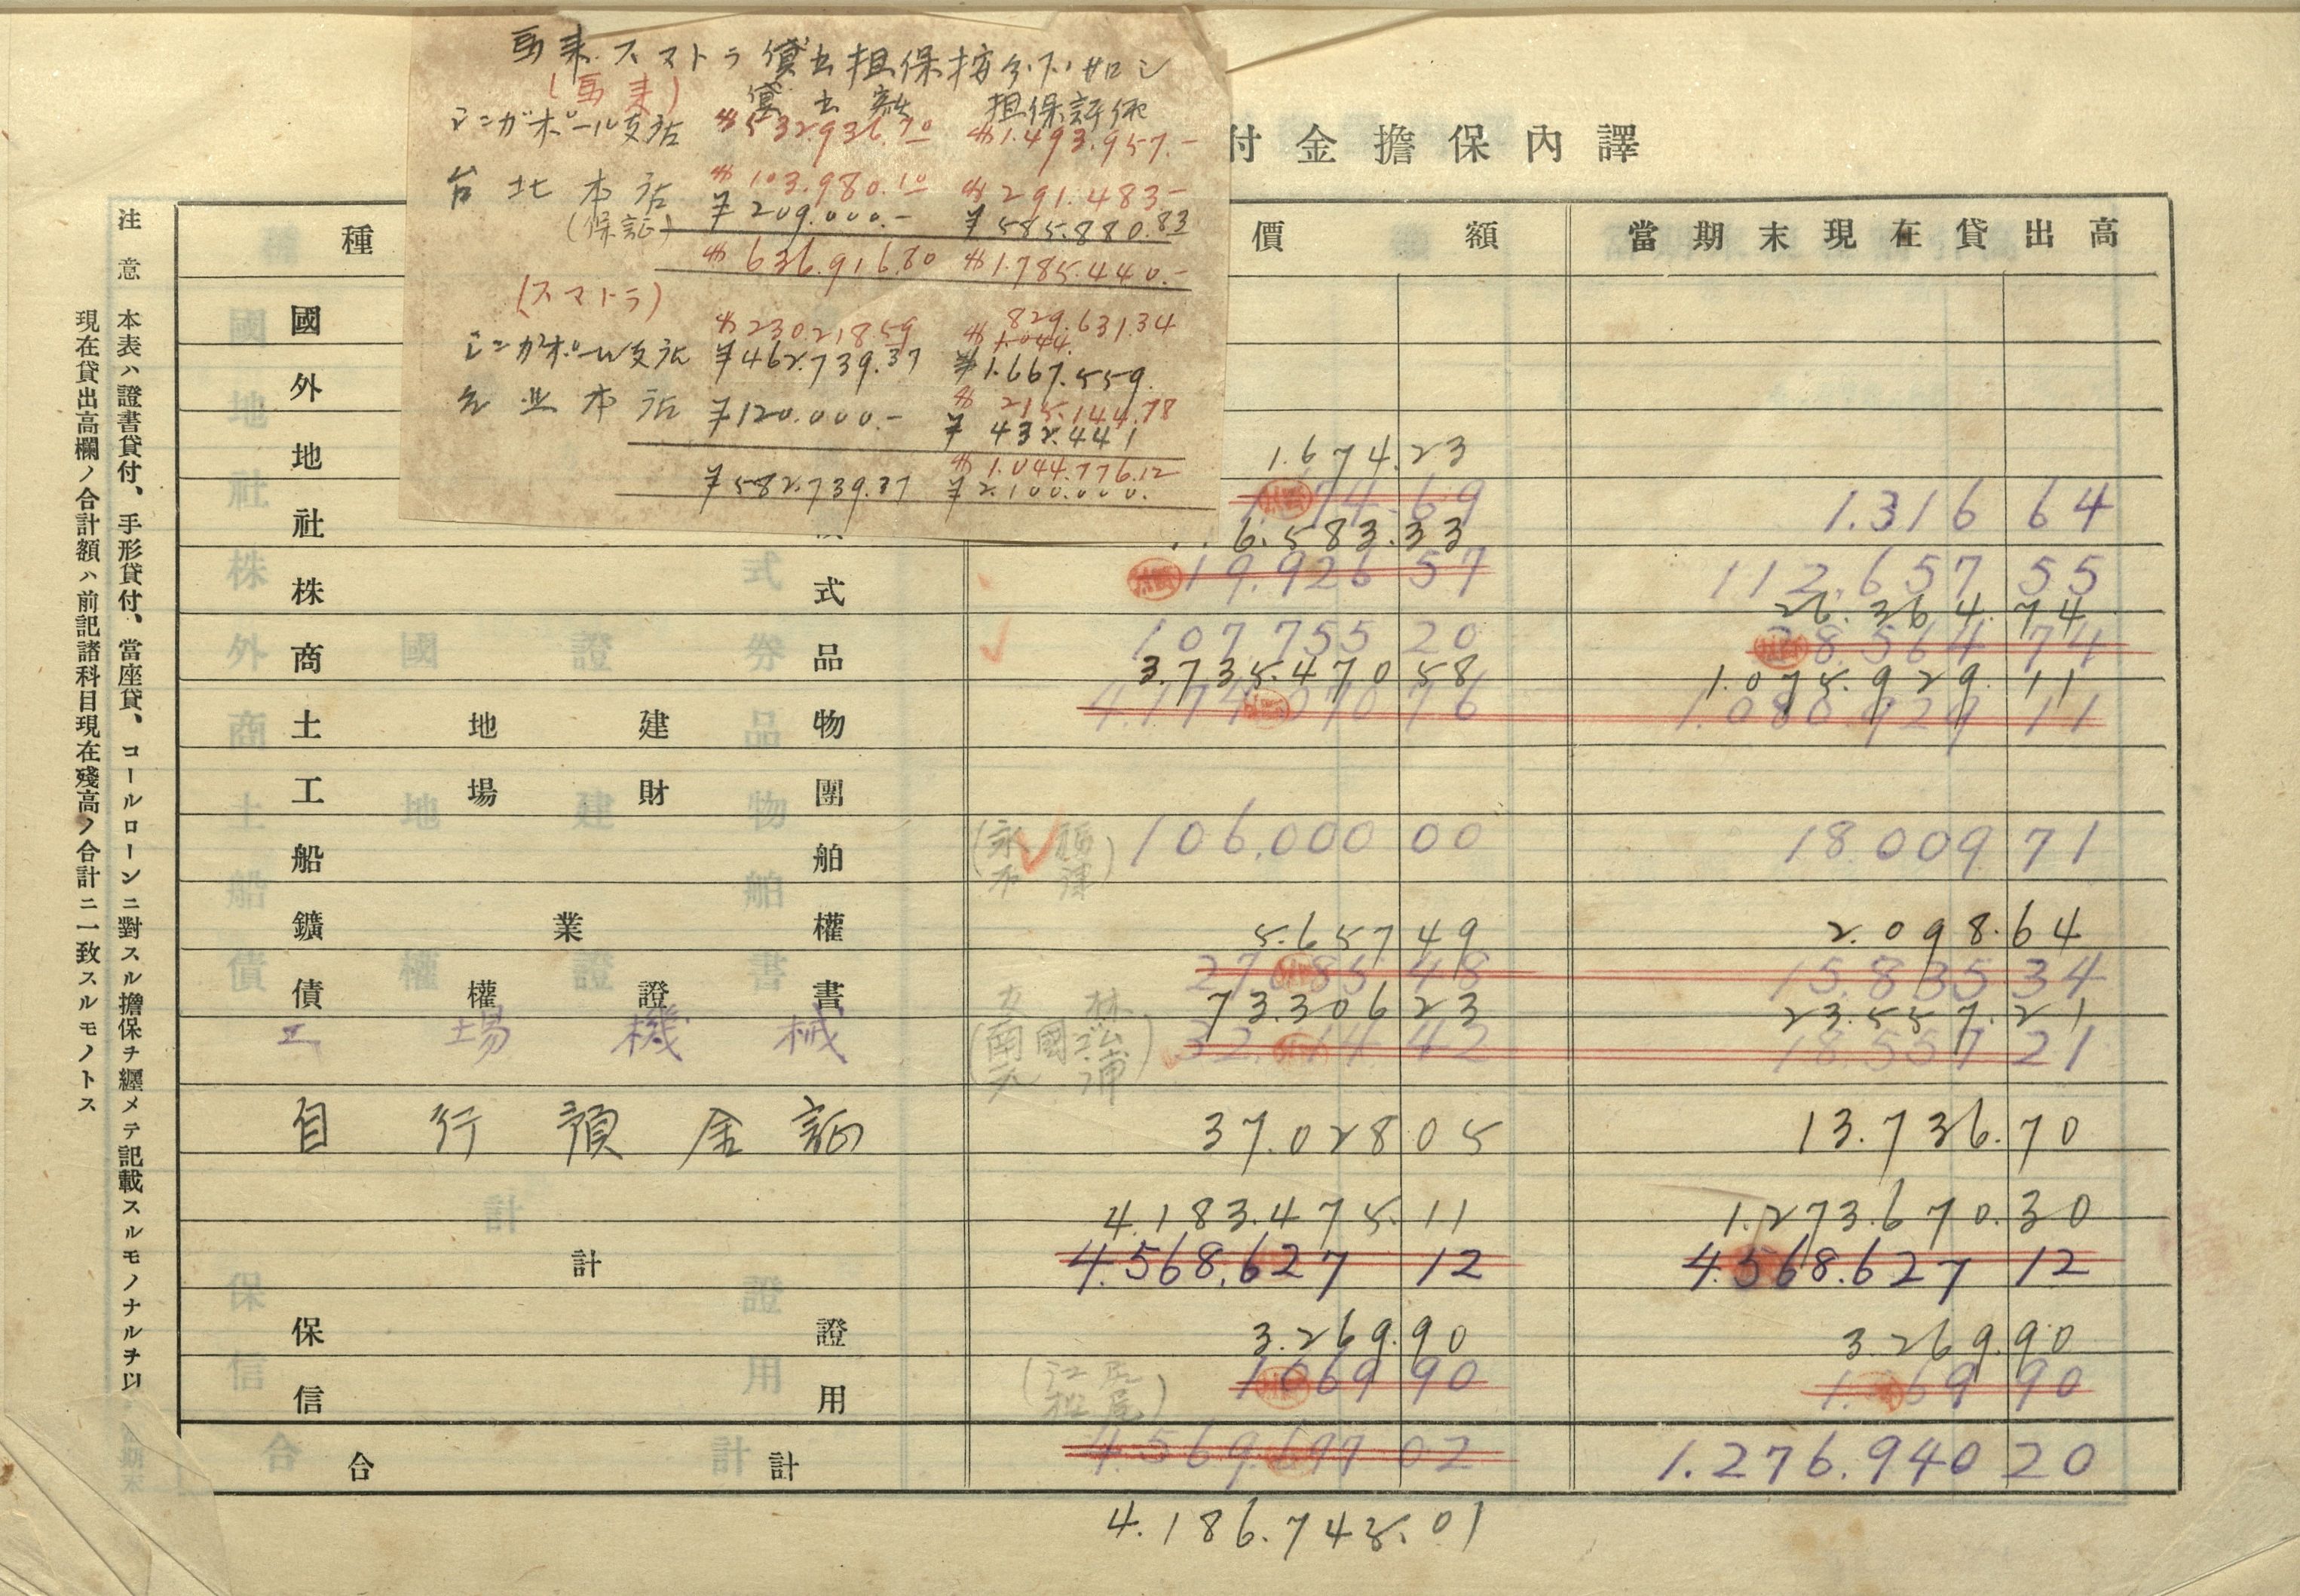 馬来スマトラ貸出担保按分
(馬来)
貸出額 担保評価
シンガポール支店 $532.936.70 $1.493.957.-
台北本店 $103.980.10 $291.483-
(保証) ¥209.000.- ¥585.880.83
$636.916.80 $1.785.440.-
(スマトラ)
$230.218.59 829.631.34
シンガポール支店 ¥462.739.37 ¥1.667.559.
$215.144.78
台北本店 ¥120.000.- ¥432.441
$1.044.776.12
¥582.739.37 ¥2.100.000.
付金擔保內譯
種 價額 當期末現在貸出高
國
外
地 1.674.23
社 1.316 64
6.583.33
株式 19.926 57 112.657 55
26.364.74
商品 107.755 20 8.564 74
3.735.470 58 1.075.929.11
土地建物 4.174.070 76 1.080.929 11
工場財團
船舶 106.000 00 18.009 71
鑛業權 5.657 49 2.098.64
債權證書 48 15.835 34
73.306 23 23.557.21
工場機械 42 18.557 21
自行預金証 37.028 05 13.736.70
4.183.475.11 1.273.670.30
計 4.568.627 12 4.568.627 12
保證 3.269.90 3.269.90
信用 1.669 90 69 90
合計 4.569.697 02 1.276.940 20
4.186.745.01
注意 本表ハ證書貸付、手形貸付、當座貸、コールローンニ對スル擔保ヲ纒メテ記載スルモノナルヲ以
現在貸出高欄ノ合計額ハ前記諸科目現在殘高ノ合計ニ一致スルモノトス